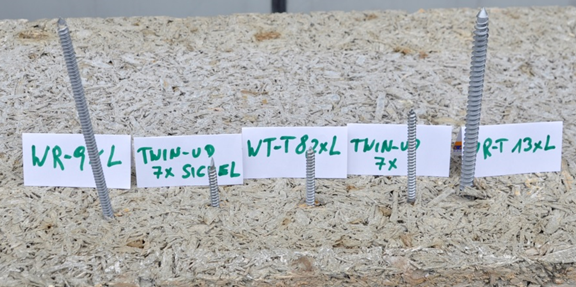 WR-9xL
TWIN-UD
7x SICHEL
WT-T 82xL
TWIN-UD
7x
WR-T 13xL